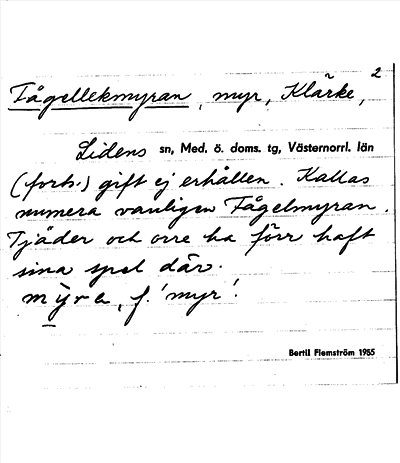 2
Fågellekmyran, myr, Klärke,
Lidens sn, Med. ö. doms. tg, Västernorrl. län
(forts.) gift ej erhållen. Kallas
numera vanligen Fågelmyran.
Tjäder och orre ha förr haft
sina spel där.
mỳra, f. 'myr'.
Bertil Flemström 1955